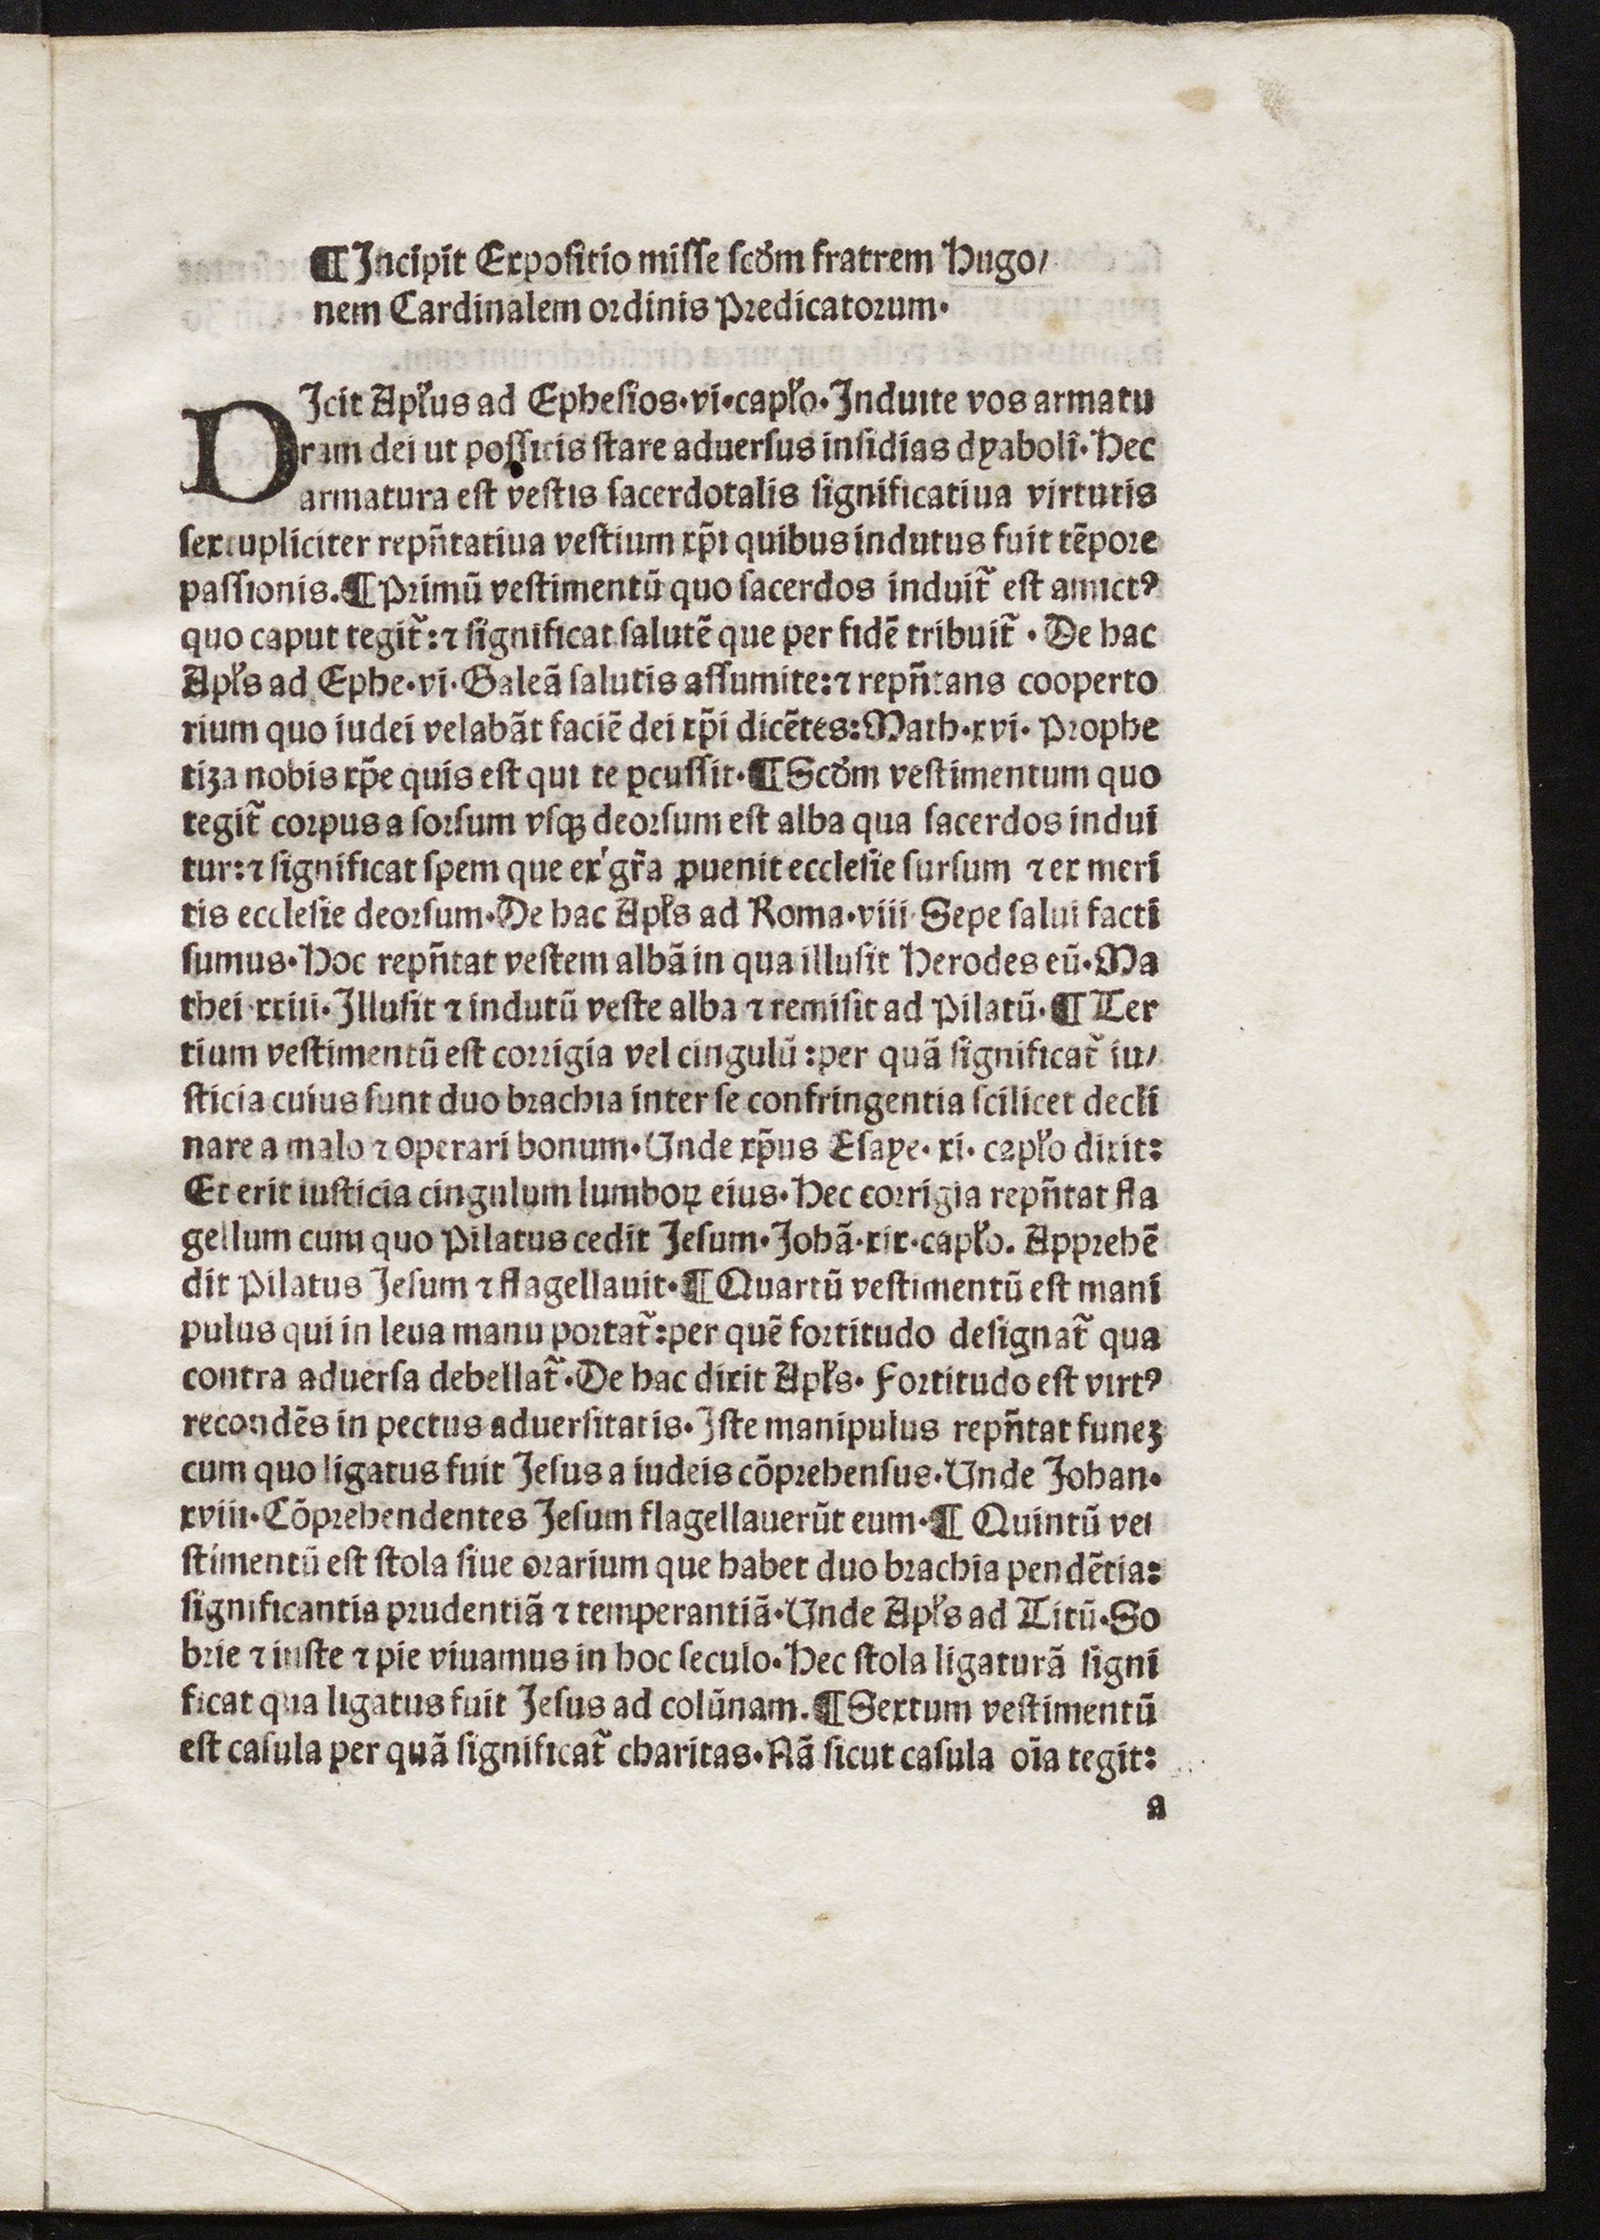 ¶ Incipit Expositio misse scd̃m fratrem Hugo/
nem Cardinalem ordinis Predicatorum.
DIcit Apl̃us ad Ephesios.vi.capl̃o.Induite vos armatu
ram dei ut possitis stare aduersus insidias dyaboli.Hec
armatura est vestis sacerdotalis significatiua virtutis
sextupliciter repñtatiua vestium xp̃i quibus indutus fuit tẽpore
passionis.¶ Primũ vestimentũ quo sacerdos induit̃ est amictꝰ
quo caput tegit̃:⁊ significat salutẽ que per fidẽ tribuit̃ . De hac
Apl̃s ad Ephe.vi.Galeã salutis assumite:⁊ repñtans cooperto
rium quo iudei velabãt faciẽ dei xp̃i dicẽtes:Math.xvi. Prophe
tiza nobis xp̃e quis est qui te ꝑcussit.¶ Scd̃m vestimentum quo
tegit̃ corpus a sorsum vsqꝫ deorsum est alba qua sacerdos indui
tur:⁊ significat spem que ex gr̃a ꝓuenit ecclesie sursum ⁊ ex meri
tis ecclesie deorsum.De hac Apl̃s ad Roma.viii.Sepe salui facti
sumus.Hoc repñtat vestem albã in qua illusit Herodes eũ.Ma
thei.xxiii.Illusit ⁊ indutũ veste alba ⁊ remisit ad Pilatũ.¶ Ter
tium vestimentũ est corrigia vel cingulũ :per quã significat̃ iu/
sticia cuius sunt duo brachia inter se confringentia scilicet decli
nare a malo ⁊ operari bonum.Unde xp̃us Esaye. xi. capl̃o dixit:
Et erit iusticia cingulum lumboꝝ eius.Hec corrigia repñtat fla
gellum cum quo Pilatus cedit Jesum.Johã.xix.capl̃o. Apprehẽ
dit Pilatus Jesum ⁊ flagellauit.¶ Quartũ vestimentũ est mani
pulus qui in leua manu portat̃:per quẽ fortitudo designat̃ qua
contra aduersa debellat̃.De hac dixit Apl̃s. Fortitudo est virtꝰ
recondẽs in pectus aduersitatis.Iste manipulus repñtat funeꝫ
cum quo ligatus fuit Jesus a iudeis cõprehensus.Unde Johan.
xviii.Cõprehendentes Jesum flagellauerũt eum.¶ Quintũ ve
stimentũ est stola siue orarium que habet duo brachia pendẽtia:
significantia prudentiã ⁊ temperantiã.Unde Apl̃s ad Titũ.So
brie ⁊ iuste ⁊ pie viuamus in hoc seculo.Hec stola ligaturã signi
ficat qua ligatus fuit Jesus ad colũnam.¶ Sextum vestimentũ
est casula per quã significat̃ charitas.Nã sicut casula oĩa tegit:
a